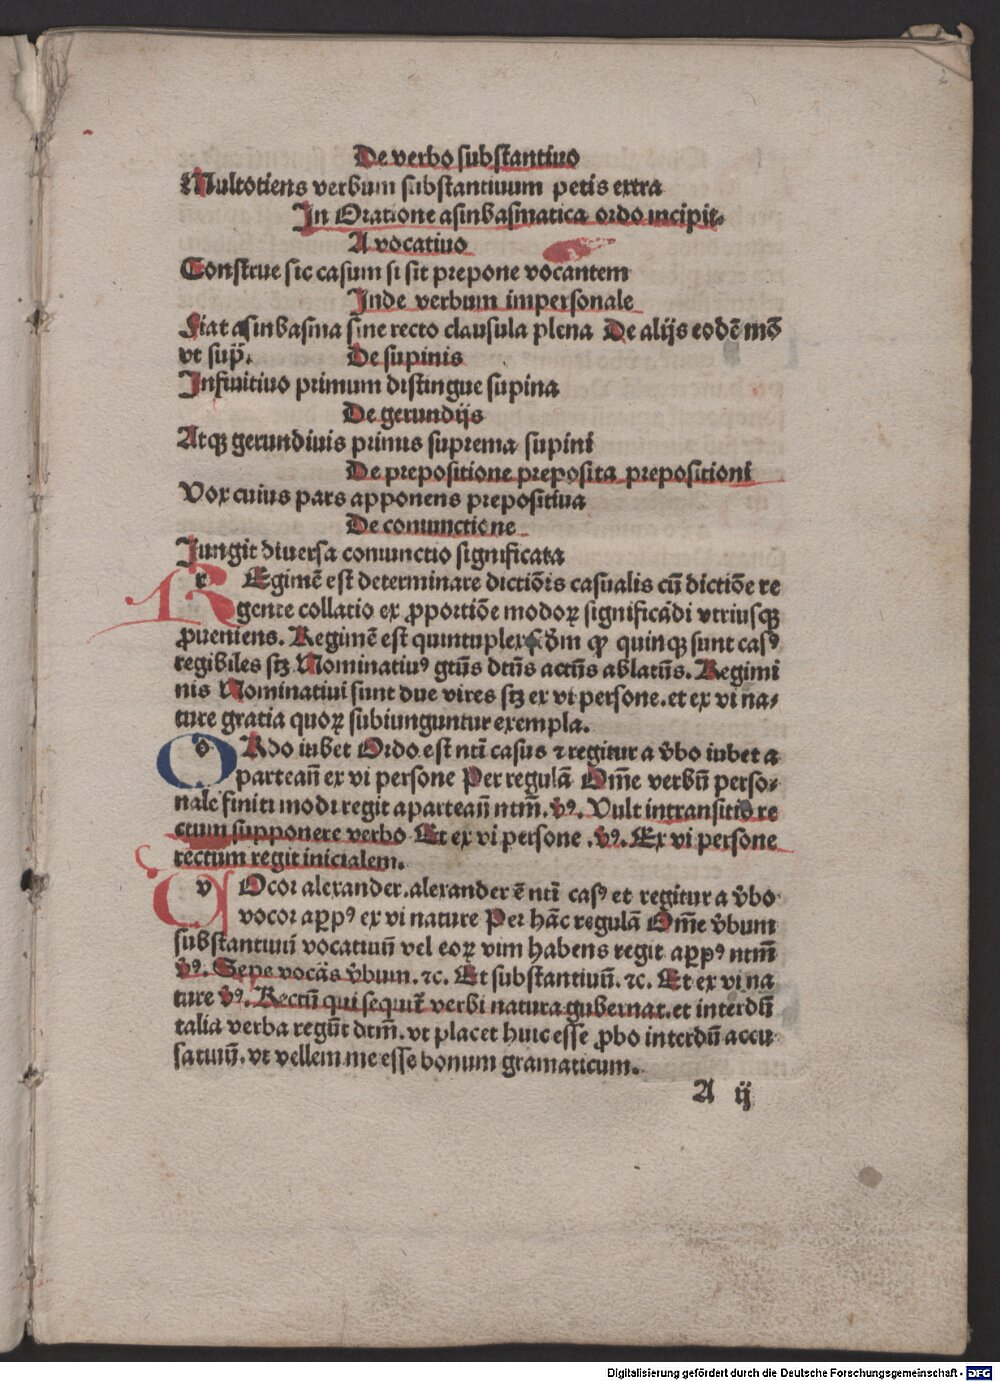 2
De verbo substantiuo
Multotiens verbum substantiuum petis extra
In Oratione asinbasmatica ordo incipit.
A vocatiuo
Construe sic casum si sit prepone vocantem
Inde verbum impersonale
Fiat asinbasma sine recto clausula plena De alijs eodē mō
vt sup̄. De supinis
Infinitiuo primum distingue supina
De gerundijs
Atqꝫ gerundiuis primus suprema supini
De prepositione preposita prepositioni
Vox cuius pars apponens prepositiua
De coniunctione
Jungit diuersa coniunctio significata
r Egimē est determinare dictiōis casualis cū dictiōe re
gente collatio ex ꝓportiōe modoꝝ significādi vtriusqꝫ
ꝓueniens. Regimē est quintuplex qꝫ quinqꝫ sunt casꝰ
regibiles sꝫ Nominatiuꝰ gtūs dtūs actūs ablatūs. Regimi
nis Nominatiui sunt due vires sꝫ ex vi persone. et ex vi na⸗
ture gratia quoꝝ subiunguntur exempla.
o Rdo iubet Ordo est ntī casus ⁊ regitur a v̄bo iubet a
parteañ ex vi persone Per regulā Om̄e verbū perso⸗
nale finiti modi regit aparteañ ntm̄. v̄ꝰ. Vult intransitio re
ctum supponere verbo Et ex vi persone .v̄ꝰ. Ex vi persone
rectum regit inicialem.
v Ocor alexander. alexander ē ntī casꝰ et regitur a v̄bo
vocor aꝑpꝰ ex vi nature Per hāc regulā Om̄e v̄bum
substantiuū vocatiuū vel eoꝝ vim habens regit aꝑpꝰ ntm̄
v̄ꝰ. Sepe vocās v̄bum. ⁊c. Et substantiuū. ⁊c. Et ex vi na
ture v̄ꝰ. Rectū qui sequit᷑ verbi natura gubernat. et interdū
talia verba regūt dtm̄. vt placet huic esse ꝓbo interdū accu
satiuū. vt vellem me esse bonum gramaticum.
A ij
Digitalisierung gefördert durch die Deutsche Forschungsgemeinschaft - DFG